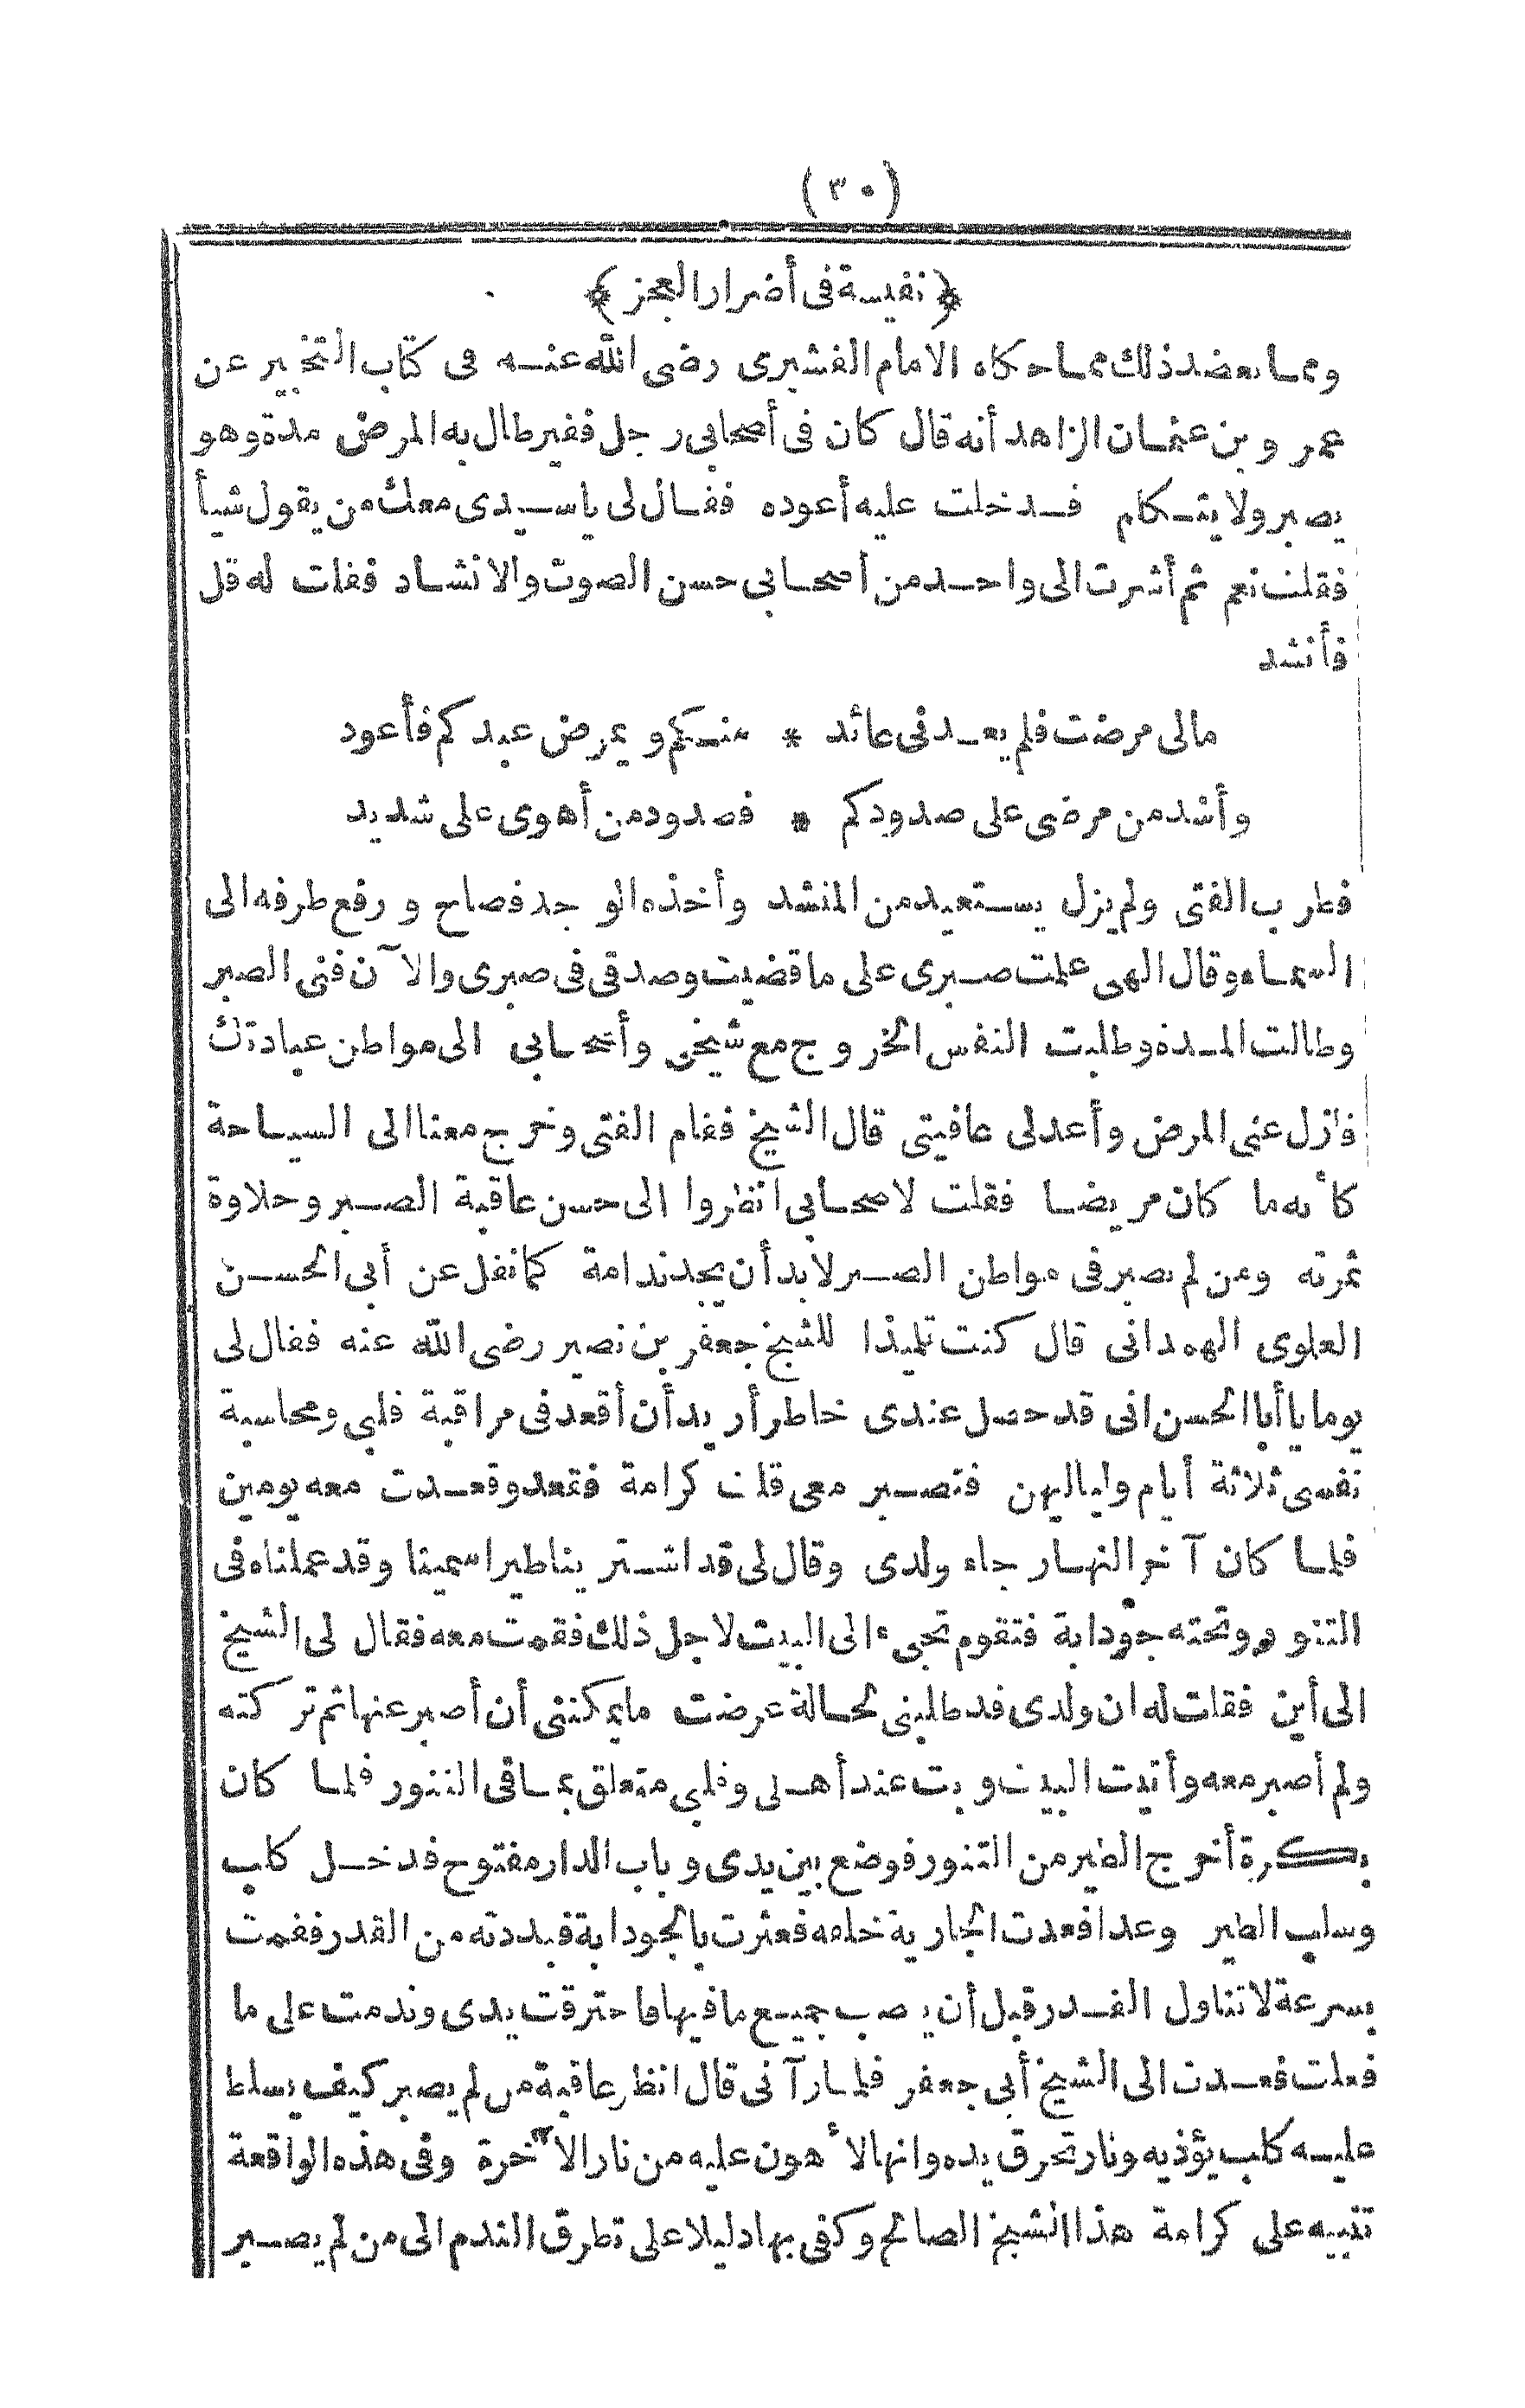 (٣٠)
﴿نفيسة فى أضرار العجز﴾
ومما يعضد ذلك مما حكاه الامام القشيرى رضى الله عنه فى كتاب التخبير عن
عمرو بن عثمان الزاهد أنه قال كان فى أصحابى رجل فقير طال به المرض مدة وهو
يصبر ولا يتكلم فدخلت عليه أعوده فقال لى يا سيدى معك من يقول شيأ
فقلت نعم ثم أشرت الى واحد من أصحابى حسن الصوت والانشاد فقلت له قل
فأنشد
مالى مرضت فلم يعدنى عائد * منكم ويمرض عبدكم فأعود
وأشد من مرضى على صدودكم * فصدود من أهوى على شديد
فطرب الفتى ولم يزل يستعيد من المنشد وأخذه الوجد فصاح ورفع طرفه الى
السماء وقال الهى علمت صبرى على ما قضيت وصدقى فى صبرى والآن فنى الصبر
وطالت المدة وطلبت النفس الخروج مع شيخى وأصحابى الى مواطن عبادتك
فازل عنى المرض وأعد لى عافيتى قال الشيخ فقام الفتى وخرج معنا الى السياحة
كأنه ما كان مريضا فقلت لاصحابى انظروا الى حسن عاقبة الصبر وحلاوة
ثمرته ومن لم يصبر فى مواطن الصبر لا بد أن يجد ندامة كما نقل عن أبى الحسن
العلوى الهمدانى قال كنت تلميذا للشيخ جعفر بن نصير رضى الله عنه فقال لى
يوما يا أبا الحسن انى قد حصل عندى خاطر أريد أن أقعد فى مراقبة قلبى ومحاسبة
نفسى ثلاثة أيام ولياليهن فتصبر معى قلت كرامة فقعد وقعدت معه يومين
فلما كان آخر النهار جاء ولدى وقال لى قد اشترينا طيرا سمينا وقد عملناه فى
التنور وتحته جودابة فتقوم تجىء الى البيت لاجل ذلك فقمت معه فقال لى الشيخ
الى أين فقلت له ان ولدى قد طلبنى لحالة عرضت ما يمكننى أن أصبر عنها ثم تركته
ولم أصبر معه وأتيت البيت وبت عند أهلى وقلبى متعلق بما فى التنور فلما كان
بكرة أخرج الطير من التنور فوضع بين يدى وباب الدار مفتوح فدخل كلب
وسلب الطير وعدا فعدت الجارية خلفه فعثرت بالجودابة فبددته من القدر فقمت
بسرعة لا تناول القدر قبل أن يصب جميع ما فيها فاحترقت يدى وندمت على ما
فعلت فعدت الى الشيخ أبى جعفر فلما رآنى قال انظر عاقبة من لم يصبر كيف يسلط
عليه كلب يؤذيه ونار تحرق يده وانها لأهون عليه من نار الآخرة وفى هذه الواقعة
تنبيه على كرامة هذا الشيخ الصالح وكفى بها دليلا على تطرق الندم الى من لم يصبر